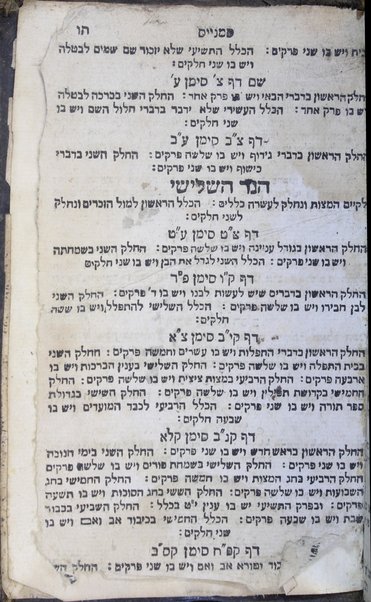 סמניים תו
בית ויש בו שני פרקים: הכלל התשיעי שלא יזכור שם שמים לבטלה
ויש בו שני חלקים:
שם דף צ' סימן ע'
החלק הראשון בדברי הבאי ויש בו פרק אחד: החלק השני בברכה לבטלה
ויש בו פרק אחד: הכלל העשירי שלא ידבר בדברי חלול השם ויש בו
שני חלקים:
דף צ"ב סימן ע"ב
החלק הראשון בדברי גידוף ויש בו שלשה פרקים: החלק השני בדברי
כישוף ויש בו שני פרקים:
הנר השלישי
לקיים המצות ונחלק לעשרה כללים: הכלל הראשון למול הזכרים ונחלק
לשני חלקים:
דף צ"ט סימן ע"ט
החלק הראשון בגודל ענינה ויש בו שלשה פרקים: החלק השני בשמחתה
ויש בו שני פרקים: הכלל השני לגדל את הבן ויש בו שני חלקים
דף ק"ו סימן פ"ד
החלק הראשון בדברים שיש לעשות לבנו ויש בו ד' פרקים: החלק השני
לבן חבירו ויש בו שלשה פרקים: הכלל השלישי להתפלל, ויש בו ששה
חלקים:
דף קי"ב סימן צ"א
החלק הראשון בדברי התפלות ויש בו עשרים וחמשה פרקים: החלק השני
בבית התפלה ויש בו שלשה פרקים: החלק השלישי בענין הברכות ויש בו
ארבעה פרקים: החלק הרביעי במצות ציצית ויש בו שלשה פרקים: החלק
החמישי בקדושת תפילין ויש בו שלשה פרקים: החלק הששי בגדולת
ספר תורה ויש בו שני פרקים: הכלל הרביעי לכבד המועדים ויש בו
שבעה חלקים:
דף קנ"ב סימן קלא
החלק הראשון בראש חדש ויש בו שני פרקים: החלק השני בימי חנוכה
ויש בו שני פרקים: החלק השלישי בשמחת פורים ויש בו שלשה פרקים
החלק הרביעי בחג המצות ויש בו חמשה פרקים: החלק החמישי בחג
השבועות ויש בו שלשה פרקים: החלק הששי בחג הסוכות ויש בו תשעה
פרקים: ובפרק התשיעי יש בו ענין י"ט בכלל: החלק השביעי בכבוד
שבת ויש בו שבעה פרקים: הכלל החמישי בכיבוד אב ואם ויש בו
שני חלקים:
דף קפ"ח סימן קס"ב
ומורא אב ואם ויש בו שני פרקים: החלק